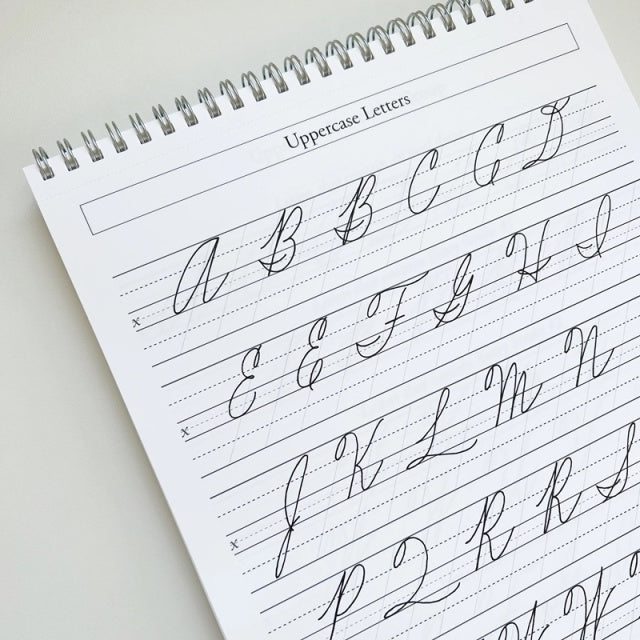 Uppercase Letters
A B B C C D
x
E E F G H I
x
J K L M N
x
P Q R R S